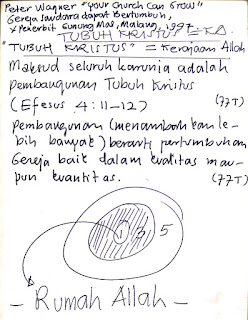 Peter Wagner "Your Church Can Grow"
Gereja Saudara dapat Bertumbuh,
Penerbit Gunung Mas, Malang, 1997
TUBUH KRISTUS = KA
"TUBUH KRISTUS" = Kerajaan Allah
Maksud seluruh karunia adalah
pembangunan Tubuh Kristus
(Efesus 4:11-12) (77T)
Pembangunan (menambahkan le-
bih banyak) berarti pertumbuhan
Gereja baik dalam kualitas mau-
pun kuantitas. (77T)
1 3 5
- Rumah Allah -